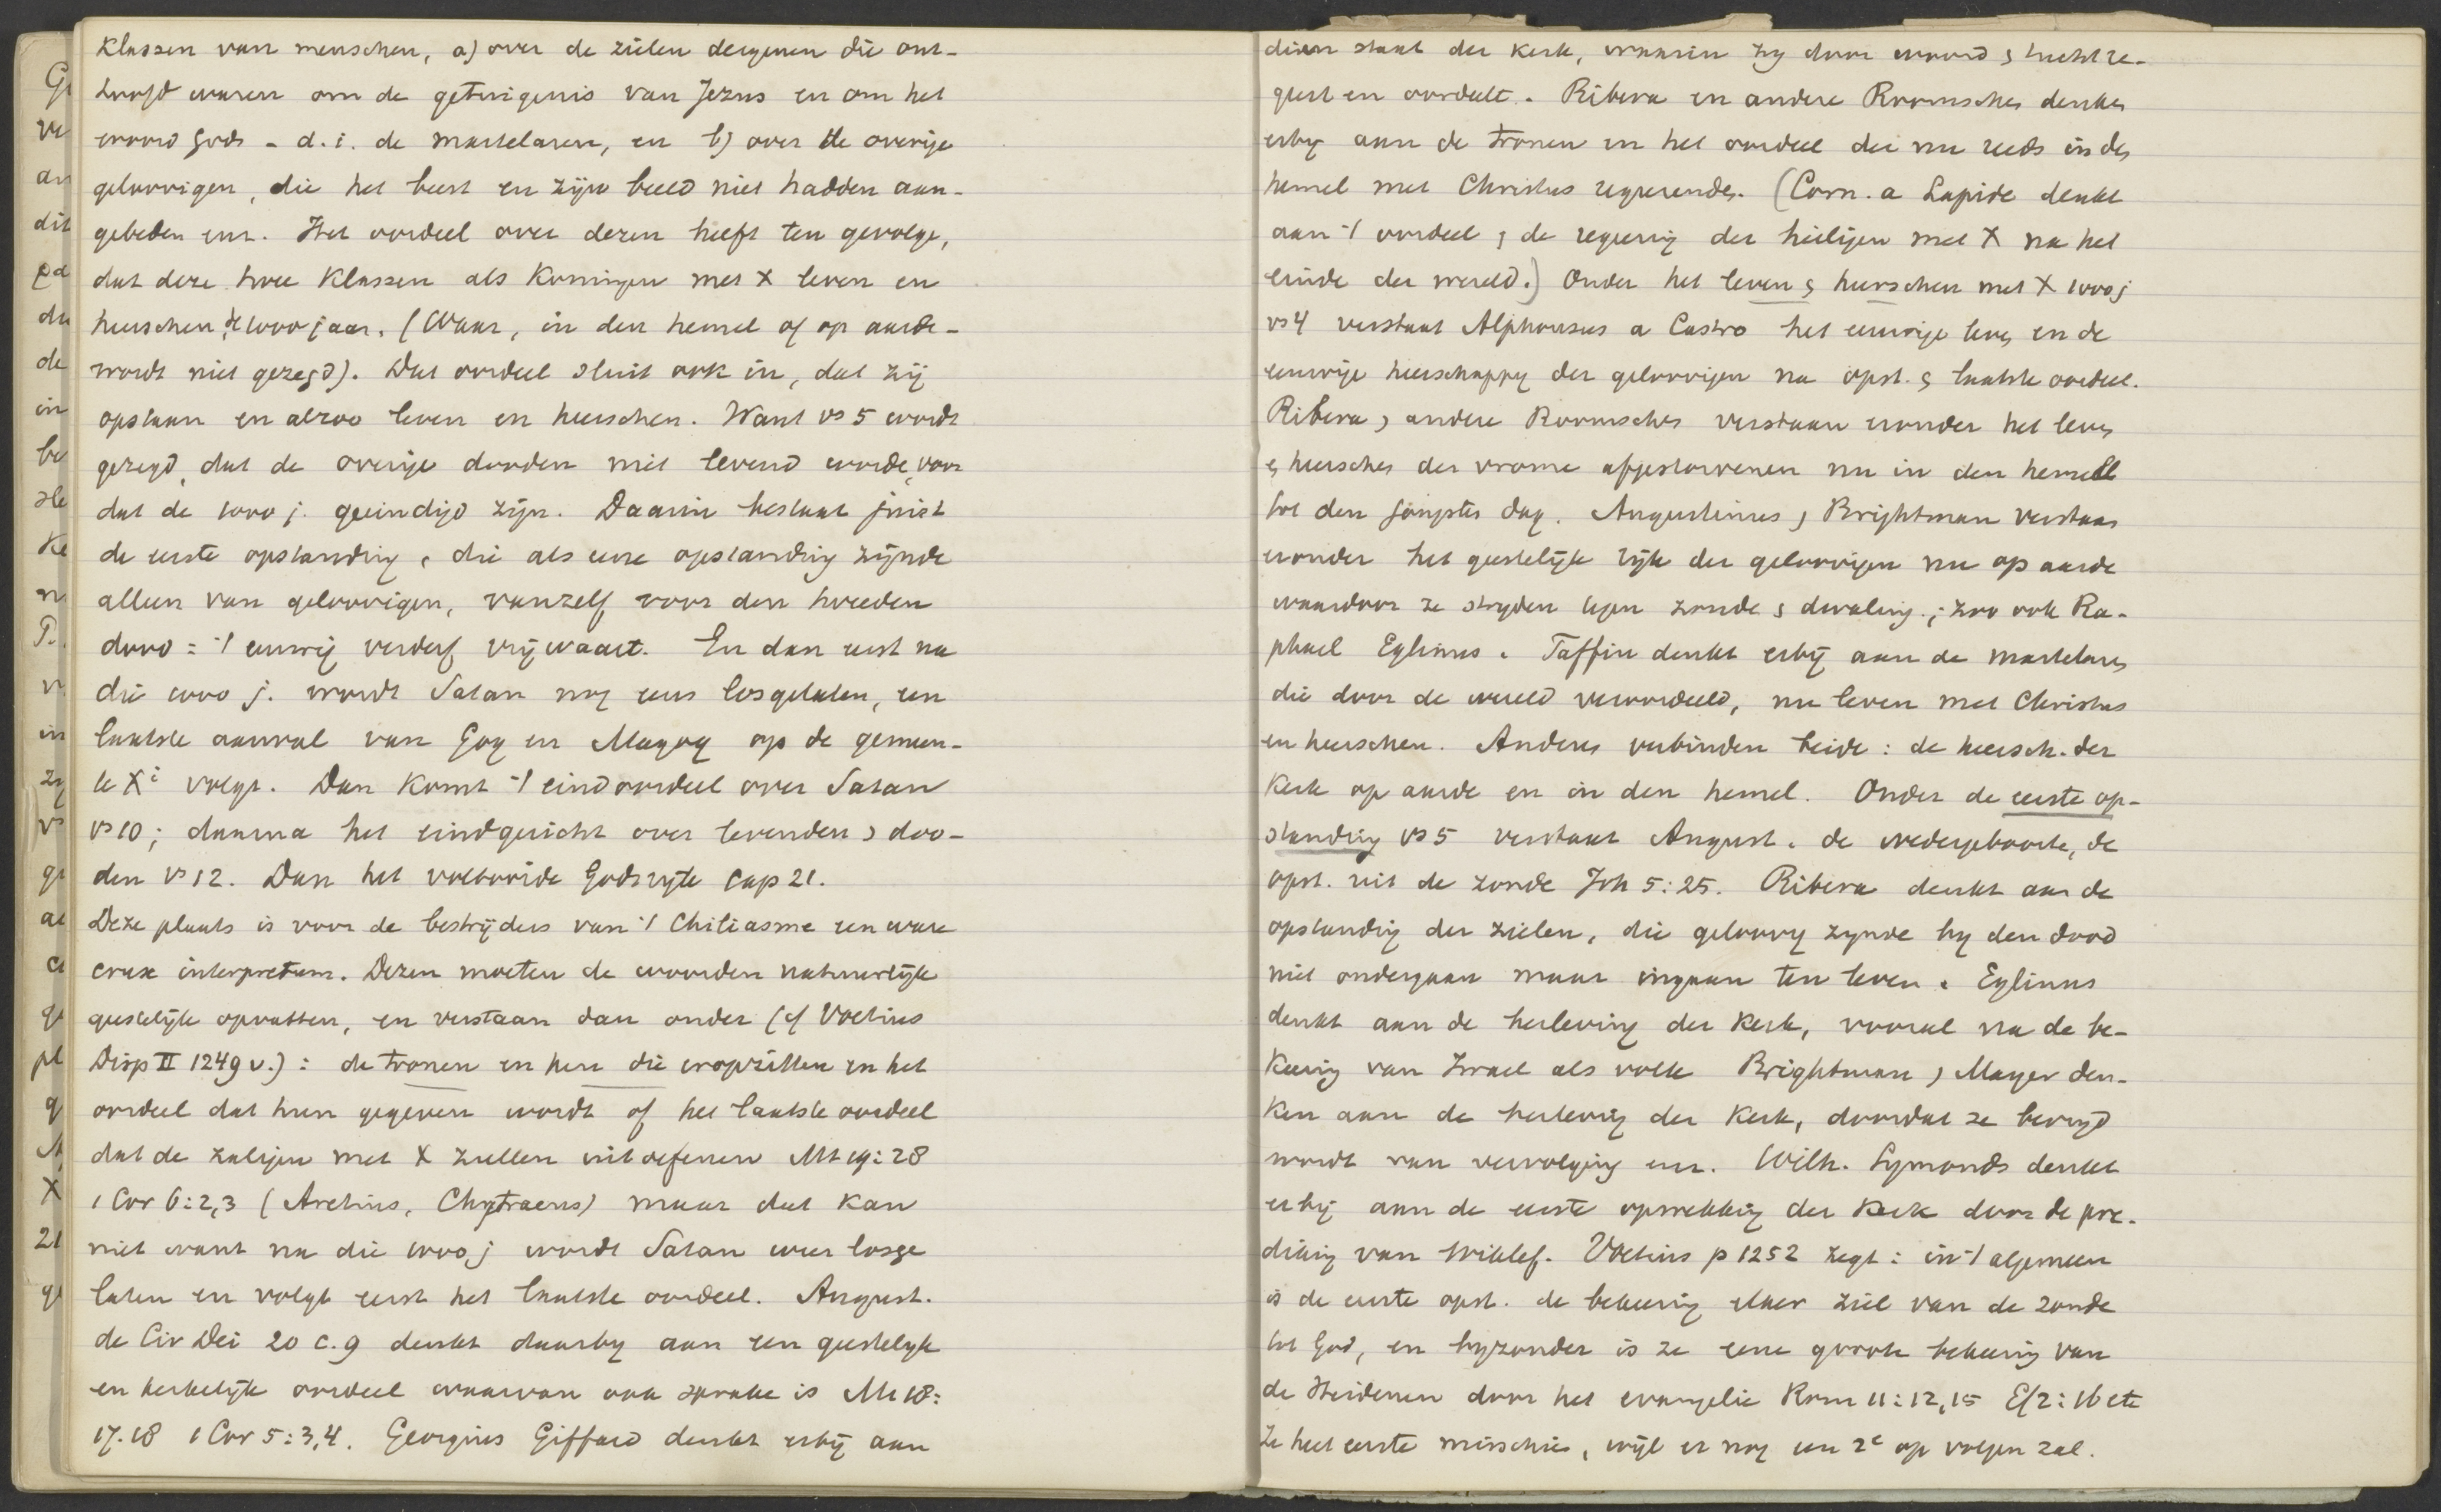 klassen van menschen, a) over de zielen dergenen die ont-
hoofd waren om de getuigenis van Jezus en om het
woord Gods - d.i. de martelaren, en b) over de overige
geloovigen, die het beest en zijn beeld niet hadden aan-
gebeden enz. Het oordeel over dezen heeft ten gevolge,
dat deze twee klassen als Koningen met X leven en
heerschen de 1000 jaar. (Waar, in den hemel of op aarde -
wordt niet gezegd). Dat oordeel sluit ook in, dat zij
opstaan en alzoo leven en heerschen. Want vs 5 wordt
gezegd, dat de overige dooden niet levend worden, voor
dat de 1000 j. geeindigd zijn. Daarin bestaat juist
de eerste opstanding, die als eene opstanding zijnde
alleen van geloovigen, vanzelf voor den tweeden
dood = 't eeuwig verderf vrijwaart. En dan eerst na
die 1000 j. wordt Satan nog eens losgelaten, een
laatste aanval van Gog en Magog op de gemeen-
te Xi volgt. Dan komt 't eindoordeel over Satan
vs 10; daarna het eindgericht over levenden, doo-
den vs 12. Dan het voltooide Godsrijk Cap 21.
Deze plaats is voor de bestrijders van 't Chiliasme een ware
crux interpretum. Dezen moeten de woorden natuurlijk
geestelijk opvatten, en verstaan dan onder (cf Voetius
Disp II 1249 v.): de tronen en hen die erop zitten en het
oordeel dat hun gegeven wordt of het laatste oordeel
dat de zaligen met X zullen uitoefenen Mt 19:28
1 Cor 6:2,3 (Aretius, Chytraeus) maar dat kan
niet want na die 1000 j wordt Satan weer losge
laten en volgt eerst het laatste oordeel. August.
de Civ Dei 20 c.9 denkt daarby aan een geestelyk
en kerkelijk oordeel waarvan ook sprake is Mt 18:
17.18 1 Cor 5:3,4. Georgius Giffard denkt erbij aan
dien staat der Kerk, waarin zy door woord & tucht re-
geert en oordeelt. Ribera en andere Roomschen denken
erby aan de tronen en het oordeel die nu reeds in den
hemel met Christus regeerenden. (Corn. a Lapide denkt
aan 't oordeel & de regeering der heiligen met X na het
einde der wereld.) Onder het leven & heerschen met X 1000 j
vs 4 verstaat Alphonsus a Castro het eeuwige leven en de
eeuwige heerschappy der geloovigen na opst. & laatste oordeel.
Ribera, andere Roomschen verstaan eronder het leven
& heerschen der vrome afgestorvenen nu in den hemel
tot den jongsten dag. Augustinus, Brightman verstaan
eronder het geestelijk rijk der geloovigen nu op aarde
waardoor ze stryden tegen zonde & dwaling; zoo ook Ra-
phael Eglinus. Taffin denkt erbij aan de martelaren
die door de wereld veroordeeld, nu leven met Christus
en heerschen. Anderen verbinden beide: de heersch. der
Kerk op aarde en in den hemel. Onder de eerste op-
standing vs 5 verstaat August. de wedergeboorte, de
opst. uit de zonde Joh 5:25. Ribera denkt aan de
opstanding der zielen, die geloovig zynde by den dood
niet ondergaan maar ingaan ten leven. Eglinus
denkt aan de herleving der Kerk, vooral na de be-
keering van Israel als volk Brightman, Mayer den-
ken aan de herleving der Kerk, doordat ze bevryd
wordt van vervolging enz. Wilh. Symonds denkt
erbij aan de eerste opwekking der Kerk door de pre-
diking van Wiklef. Voetius p 1252 zegt: in 't algemeen
is de eerste opst. de bekeering eener ziel van de zonde
tot God, en byzonder is ze eene groote bekeering van
de Heidenen door het evangelie Rom 11:12,15 Ef 2:16 etc
Ze heet eerste misschien, wijl er nog een 2e op volgen zal.